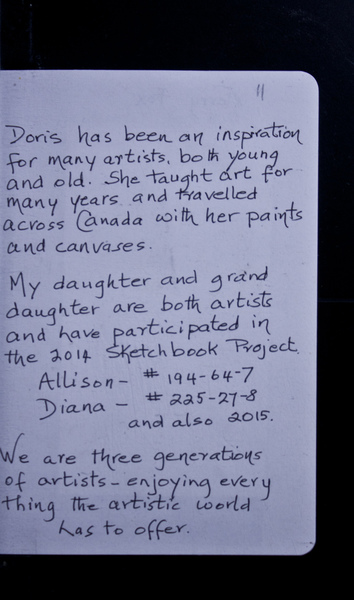 11
Doris has been an inspiration
for many artists, both young
and old. She taught art for
many years and travelled
across Canada with her paints
and canvases.
My daughter and grand
daughter are both artists
and have participated in
the 2014 Sketchbook Project.
Allison - # 194-64-7
Diana - # 225-27-8
and also 2015.
We are three generations
of artists - enjoying every
thing the artistic world
has to offer.